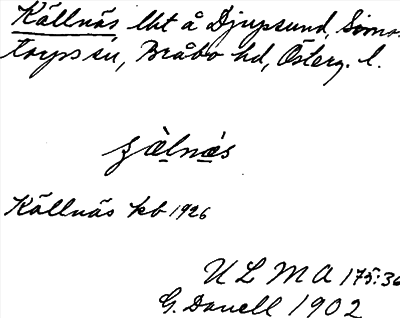 Källnäs lht å Djupsund, Simons
torps sn, Bråbo hd, Österg. l.
ʃæ̀lnäs
Källnäs kb 1926
ULMA 175:36
G. Danell 1902